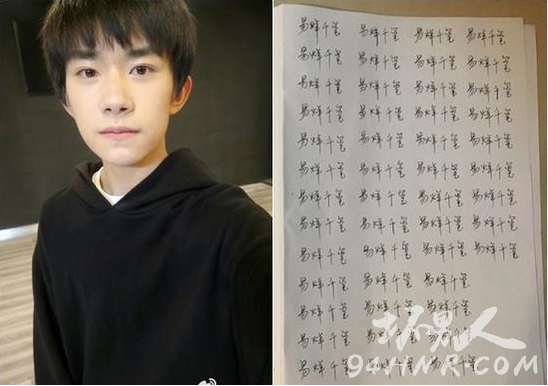 易烊千玺 易烊千玺 易烊千玺 易烊千玺
易烊千玺 易烊千玺 易烊千玺 易烊千玺
易烊千玺 易烊千玺 易烊千玺 易烊千玺
易烊千玺 易烊千玺 易烊千玺 易烊千玺
易烊千玺 易烊千玺 易烊千玺 易烊千玺
易烊千玺 易烊千玺 易烊千玺 易烊千玺
易烊千玺 易烊千玺 易烊千玺 易烊千玺
易烊千玺 易烊千玺 易烊千玺 易烊千玺
易烊千玺 易烊千玺 易烊千玺 易烊千玺
易烊千玺 易烊千玺 易烊千玺
易烊千玺 易烊千玺 易烊千玺
易烊千玺 易烊千玺 易烊千玺
易烊千玺 易烊千玺 易烊千玺
坏男人
94HNR.COM